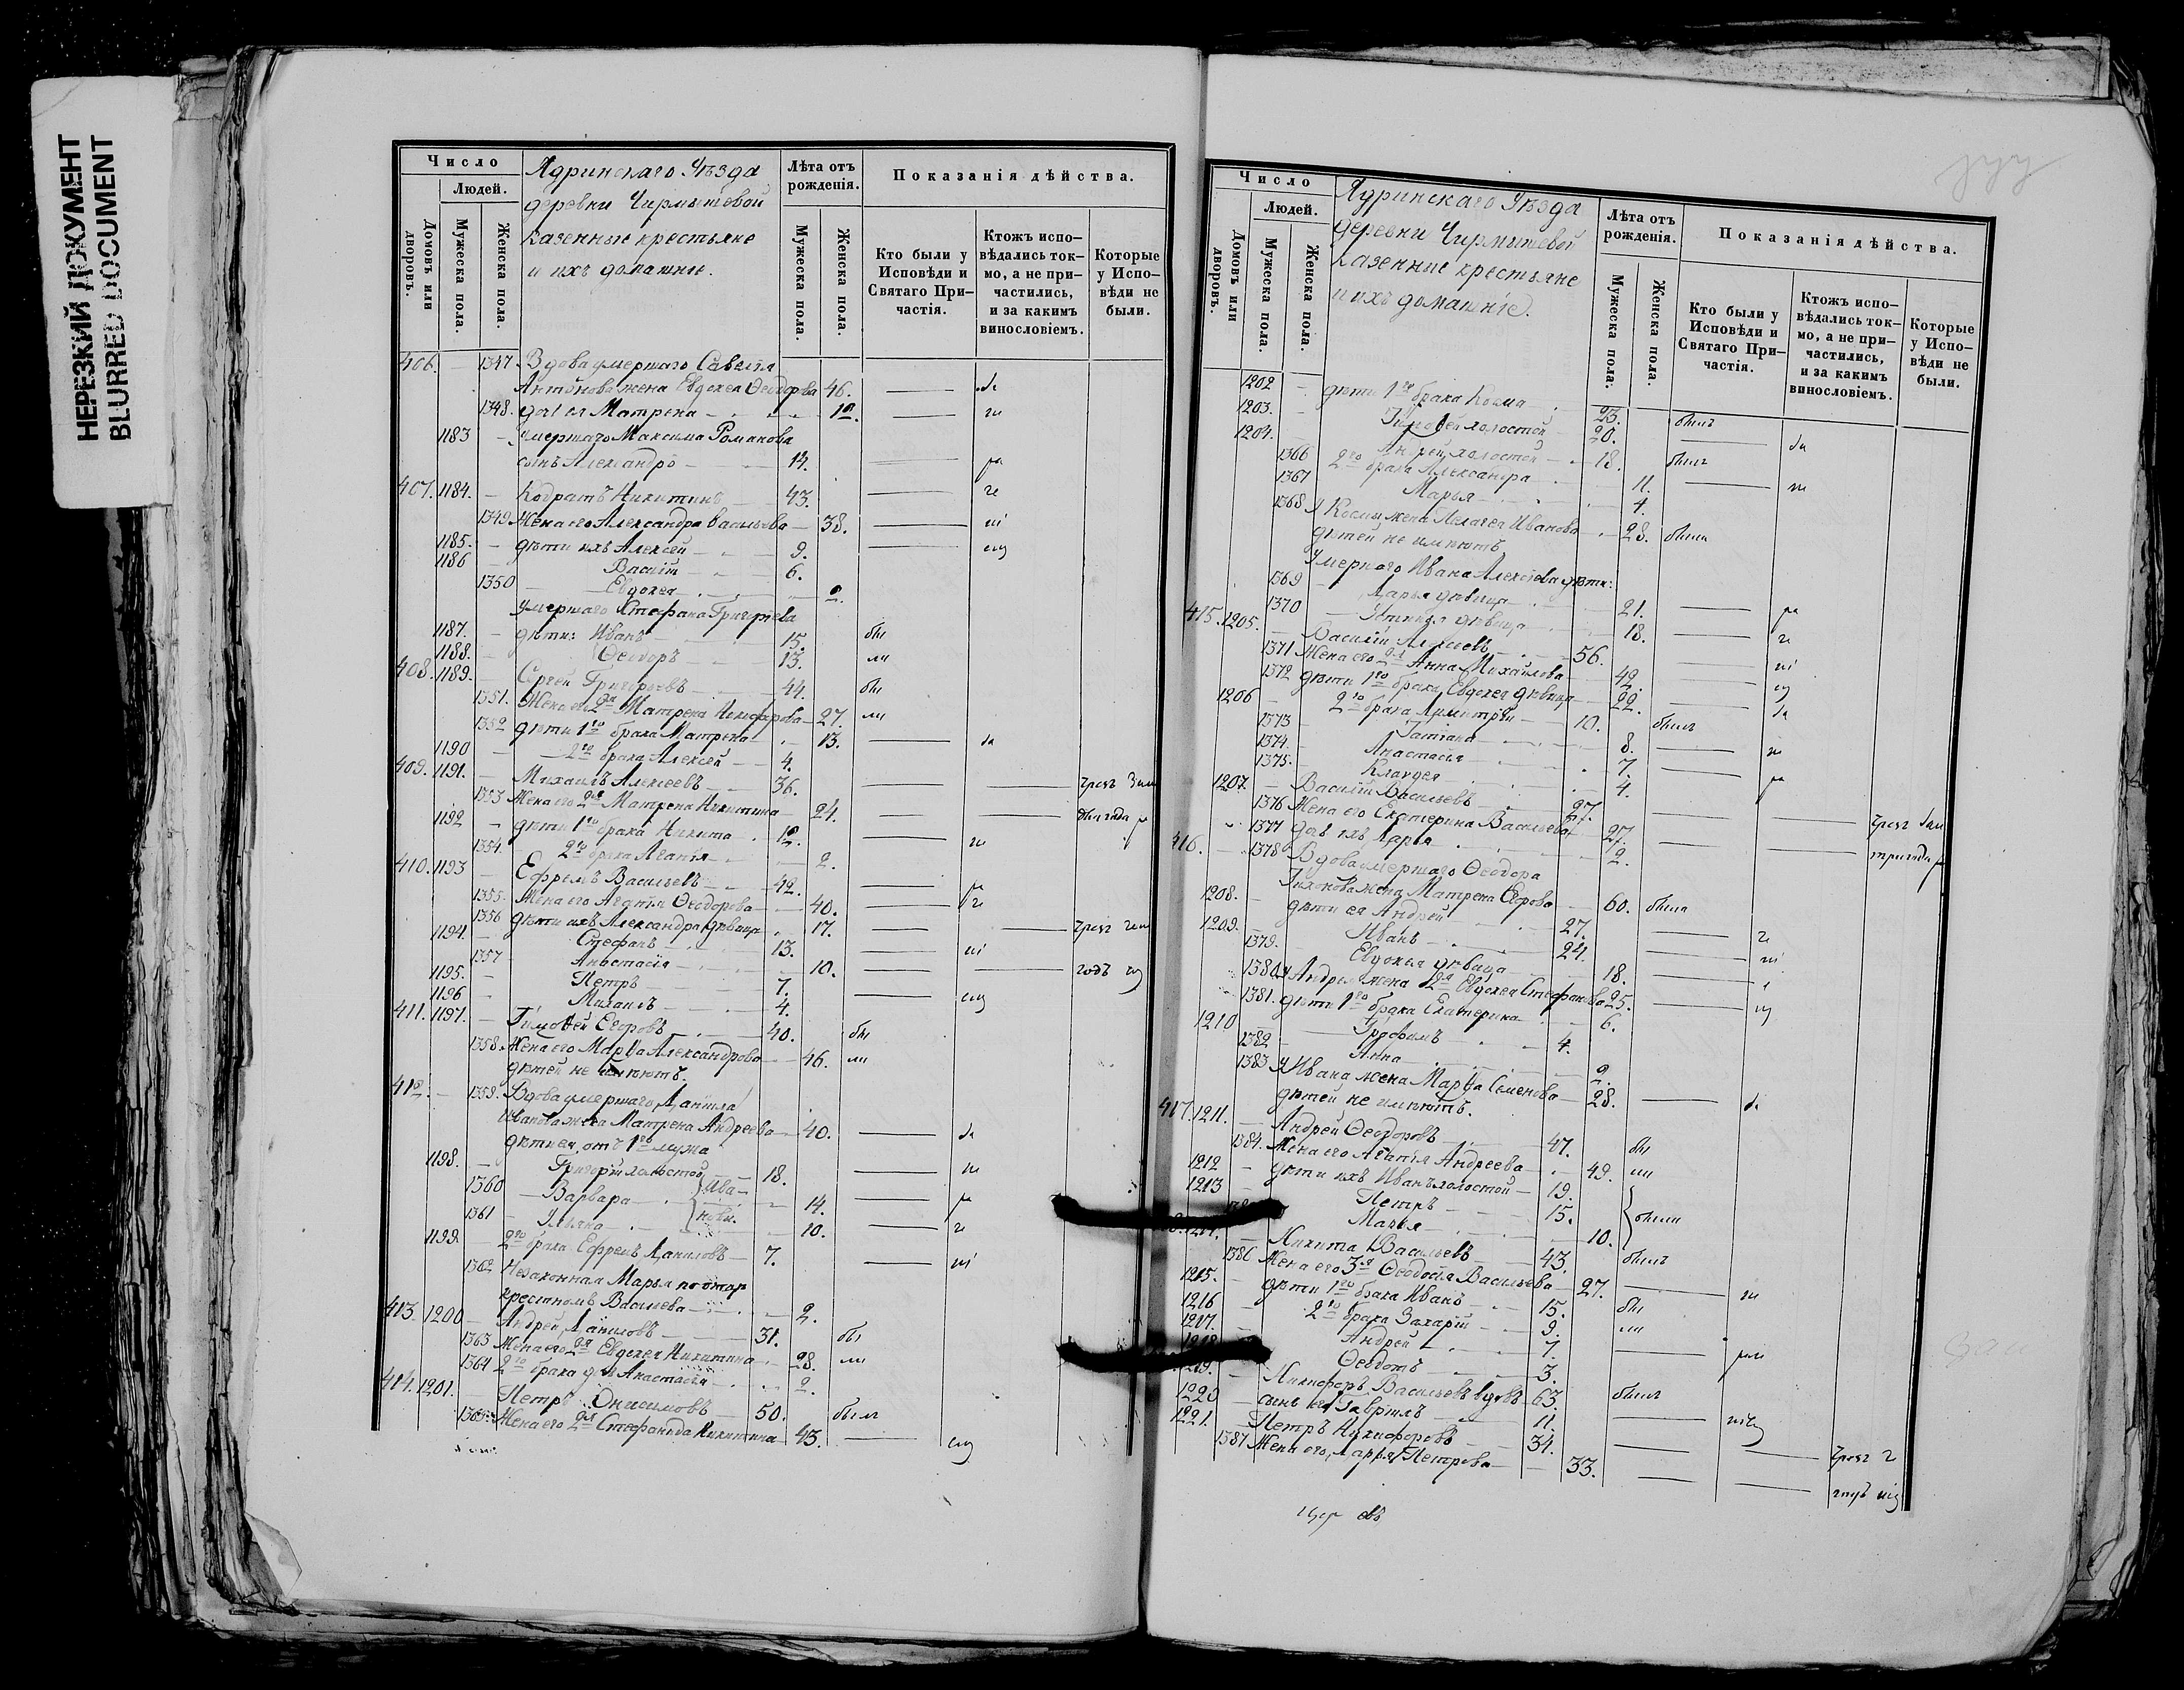 НЕРЕЗКИЙ ДОКУМЕНТ
BLURRED DOCUMENT
Число
Людей.
Домовъ или дворовъ.
Мужеска пола.
Женска пола.
Ядринскаго Уѣзда
деревни Чирмышевой
казенные крестьяне
и ихъ домашніе.
Лѣта отъ рожденія.
Мужеска пола.
Женска пола.
Показанія дѣйства.
Кто были у Исповѣди и Святаго При-частія.
Ктожъ испо-вѣдались ток-мо, а не при-частились, и за какимъ винословіемъ.
Которые у Испо-вѣди не были.
406. — 1347. Вдова умершаго Савелія
Антонова жена Евдокея Ѳеодорова 46.
1348. дочь ея Матрена 12.
1183 — Умершаго Максима Романова
сынъ Александръ 14.
407. 1184. — Кодратъ Никитинъ 43.
1349 Жена его Александра Васильева — 38.
1185. — дѣти ихъ Алексѣй 9.
1186 Василій 6.
1350 Евдокея 2.
умершаго Стефана Григорьева
1187. — дѣти: Иванъ 15.
1188. — Ѳеодоръ 13.
408. 1189. — Сергей Григорьевъ 44.
1351. Жена его 2я Матрена Никифорова — 27.
1352 дѣти 1го брака Матрена 13.
1190 — 2го брака Алексѣй 4.
409. 1191. — Михаилъ Алексеевъ 36.
1353 Жена его 2я Матрена Никитина 24.
1192 — дѣти 1го брака Никита 12.
1354. 2го брака Агапія 2.
410. 1193 — Ефремъ Васильевъ 42.
1355. Жена его Агапія Ѳеодорова 40.
1356 дѣти ихъ Александра дѣвица 17.
1194. — Стефанъ 13.
1357 Анастасія 10.
1195. — Петръ 7.
1196 — Михаилъ 4.
411. 1197. — Тимоѳей Егоровъ 40.
1358. Жена его Марѳа Александрова — 46.
дѣтей не имѣютъ.
412. — 1359. Вдова умершаго Данила
Иванова жена Матрена Андреева 40.
дѣти ея, отъ 1го мужа
1198. — Григорій холостой 18.
1360 — Варвара 14.
1361 — Ульяна 10.
1199. — 2го брака Ефремъ Даниловъ 7.
1362 Незаконная Марья по отцу
крестномъ Васильева 2.
413. 1200 — Андрей Даниловъ 31.
1363 Жена его 2я Евдокея Никитина 28.
1364 2го брака дочь Анастасія 2.
414. 1201. — Петръ Онисимовъ 50.
1365 Жена его 2я Стефанида Никитина 43.
Число
Людей.
Домовъ или дворовъ.
Мужеска пола.
Женска пола.
Ядринскаго Уѣзда
деревни Чирмышевой
казенные крестьяне
и ихъ домашніе.
Лѣта отъ рожденія.
Мужеска пола.
Женска пола.
Показанія дѣйства.
Кто были у Исповѣди и Святаго При-частія.
Ктожъ испо-вѣдались ток-мо, а не при-частились, и за какимъ винословіемъ.
Которые у Испо-вѣди не были.
1202 — дѣти 1го брака Козма 23. былъ
1203. — Тимоѳей холостой 20.
1204. — Андрей холостой 18. былъ
1366 2го брака Александра 11.
1367 Марья 4.
1368 У Козмы жена Пелагея Иванова 28. была
дѣтей не имѣютъ
Умершаго Ивана Алексѣева дѣти:
1369 Дарья дѣвица 21.
1370 Устинья дѣвица 18.
415. 1205. — Василій Алексеевъ 56.
1371 Жена его 2я Анна Михайлова 42.
1372 дѣти 1го брака Евдокея дѣвица 22.
1206 — 2го брака Димитрій 10. былъ
1373 Татіана 8.
1374. Анастасія 7.
1375. Клавдея 4.
1207. — Василій Васильевъ 27.
1376 Жена его Екатерина Васильева 27.
1377 дочь ихъ Дарья 2.
416. — 1378 Вдова умершаго Ѳеодора
Тихонова жена Матрена Егорова 60. была
1208. — дѣти ея Андрей 27.
1209. — Иванъ 24.
1379. Евдокья дѣвица 18.
1380 У Андрея жена 2я Евдокея Стефанова 25.
1381. дѣти 1го брака Екатерина 6.
1210 — Трофимъ 4.
1382 Анна 2.
1383 У Ивана жена Марѳа Семенова 28.
дѣтей не имѣютъ.
417. 1211. — Андрей Ѳеодоровъ 47.
1384. Жена его Агапія Андреева 49.
1212 — дѣти ихъ Иванъ холостой 19.
1213 Петръ 15.
Марья 10.
Никита Васильевъ 43. былъ
1386 Жена его 3я Ѳеодосія Васильева 27.
1215. — дѣти 1го брака Иванъ 15.
1216 — 2го брака Захарій 9.
1217. Андрей 7.
1218 Ѳеодотъ 3.
1219. — Никифоръ Васильевъ вдовъ 63. былъ
1220 — сынъ его Гаврилъ 11.
1221. — Петръ Никифоровъ 34.
1387 Жена его Дарья Петрова 33.